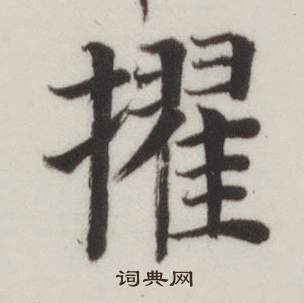 擢
词典网